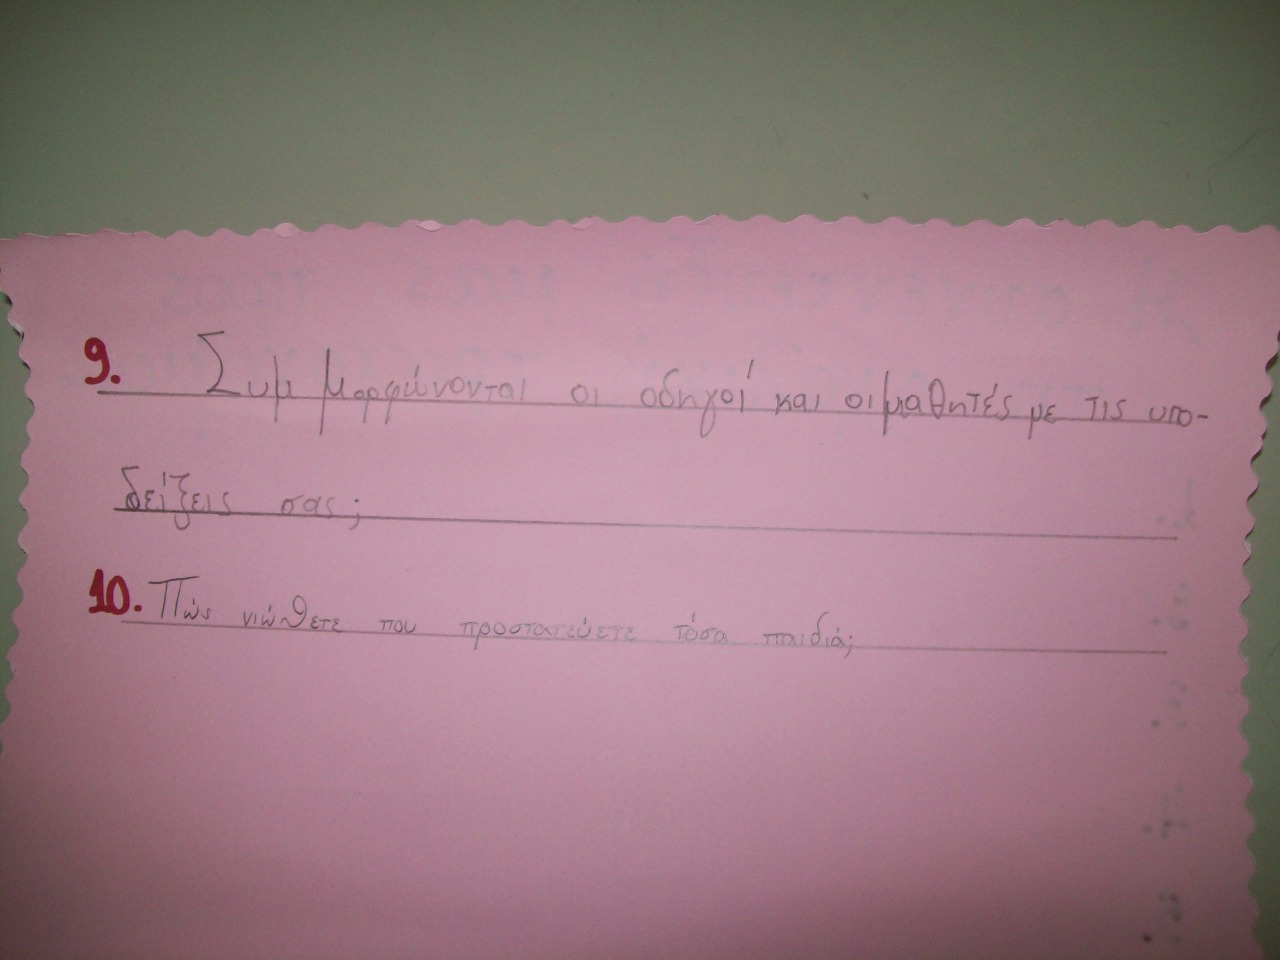 9. Συμμορφώνονται οι οδηγοί και οι μαθητές με τις υπο-
δείξεις σας;
10. Πώς νιώθετε που προστατεύετε τόσα παιδιά;